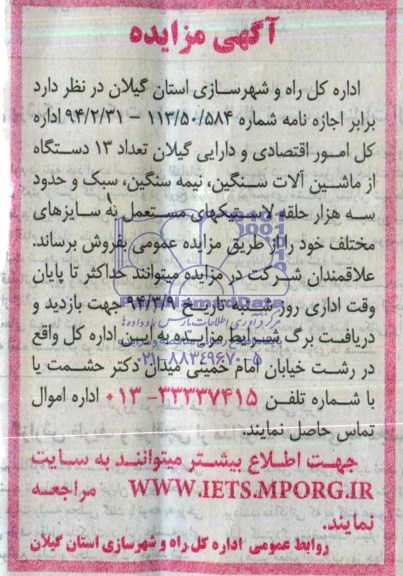 آگهی مزایده
اداره کل راه و شهرسازی استان گیلان در نظر دارد
برابر اجازه نامه شماره ۱۱۳/۵۰/۵۸۴ – ۹۴/۲/۳۱ اداره
کل امور اقتصادی و دارایی گیلان تعداد ۱۳ دستگاه
از ماشین آلات سنگین، نیمه سنگین، سبک و حدود
سه هزار حلقه لاستیکهای مستعمل به سایزهای
مختلف خود را از طریق مزایده عمومی بفروش برساند.
علاقمندان شرکت در مزایده میتوانند حداکثر تا پایان
وقت اداری روز شنبه تاریخ ۹۴/۳/۹ جهت بازدید و
دریافت برگ شرایط مزایده به این اداره کل واقع
در رشت خیابان امام خمینی میدان دکتر حشمت یا
با شماره تلفن ۳۳۳۳۷۴۱۵-۰۱۳ اداره اموال
تماس حاصل نمایند.
جهت اطلاع بیشتر میتوانند به سایت
WWW.IETS.MPORG.IR مراجعه
نمایند.
روابط عمومی اداره کل راه و شهرسازی استان گیلان
ParsNamadData
۰۲۱-۸۸۳۴۹۶۷۰-۵